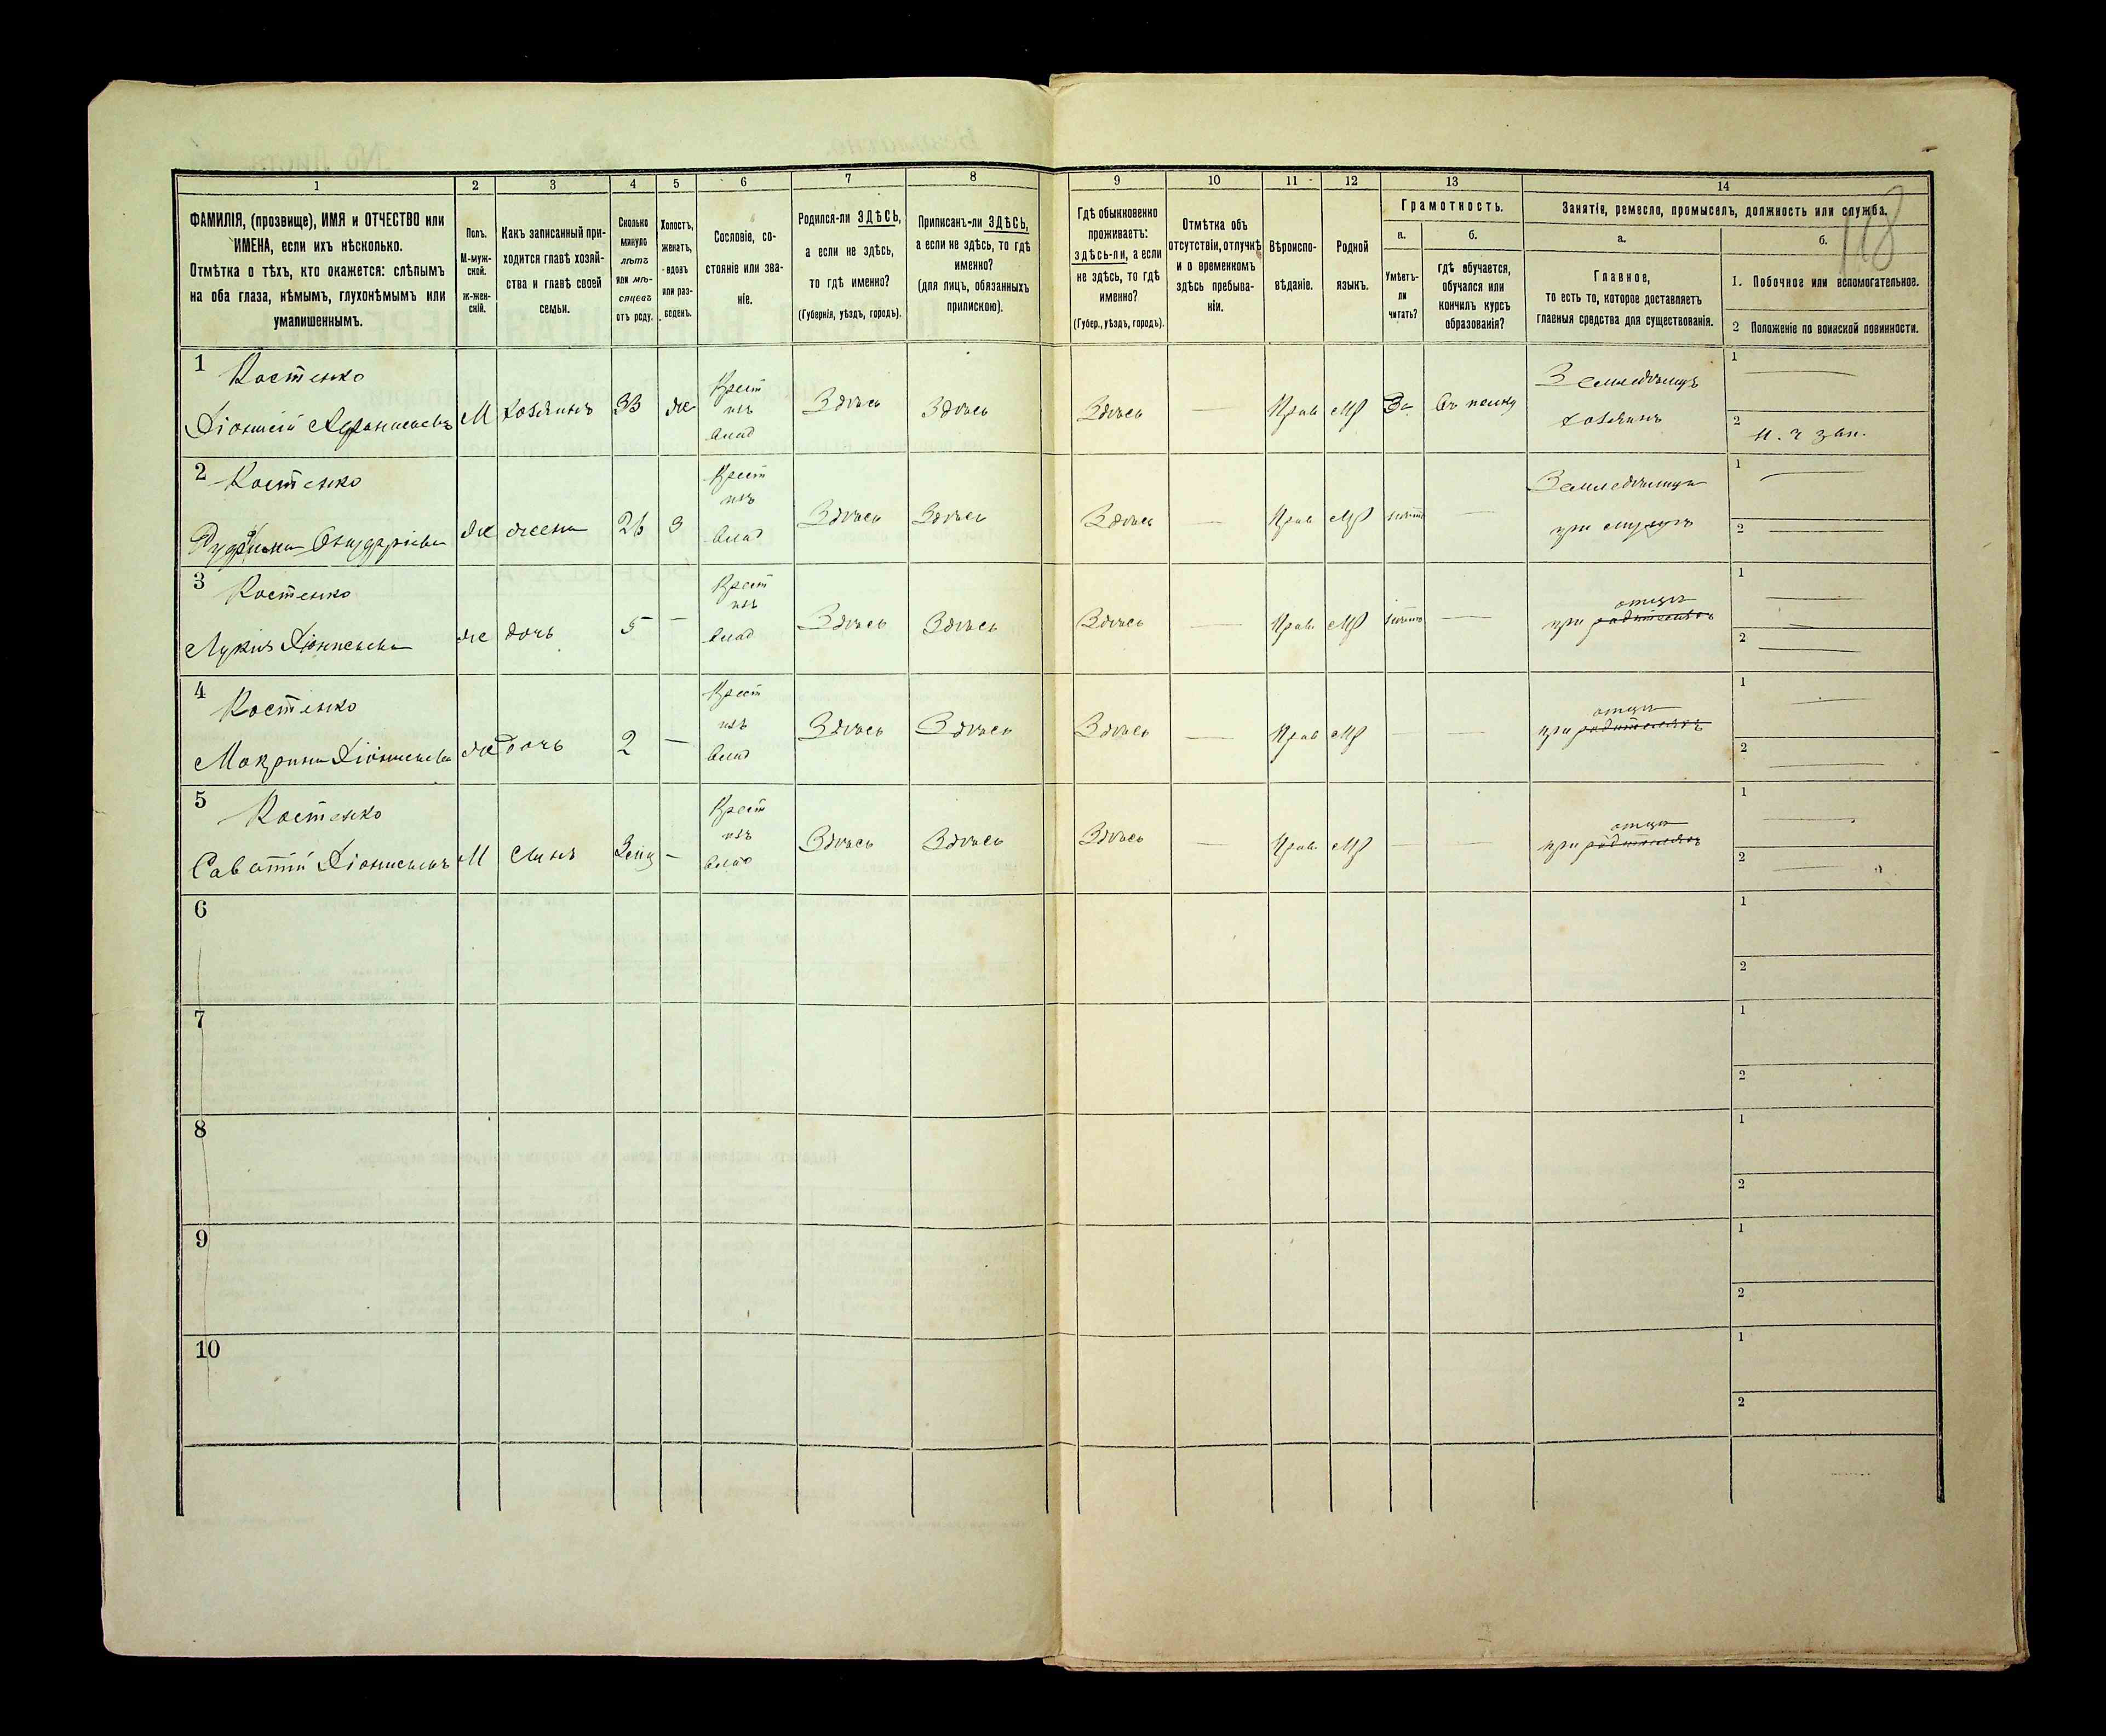 1 2 3 4 5 6 7 8 9 10 11 12 13 14
118
ФАМИЛІЯ, (прозвище), ИМЯ и ОТЧЕСТВО или
ИМЕНА, если ихъ нѣсколько.
Отмѣтка о тѣхъ, кто окажется: слѣпымъ
на оба глаза, нѣмымъ, глухонѣмымъ или
умалишеннымъ.
Полъ.
М-муж-
ской.
ж-жен-
скій.
Какъ записанный при-
ходится главѣ хозяй-
ства и главѣ своей
семьи.
Сколько
минуло
лѣтъ
или мѣ-
сяцевъ
отъ роду.
Холостъ,
женатъ,
вдовъ
или раз-
веденъ.
Сословіе, со-
стояніе или зва-
ніе.
Родился-ли ЗДѢСЬ,
а если не здѣсь,
то гдѣ именно?
(Губернія, уѣздъ, городъ).
Приписанъ-ли ЗДѢСЬ,
а если не здѣсь, то гдѣ
именно?
(для лицъ, обязанныхъ
припискою).
Гдѣ обыкновенно
проживаетъ:
здѣсь-ли, а если
не здѣсь, то гдѣ
именно?
(Губер., уѣздъ, городъ).
Отмѣтка объ
отсутствіи, отлучкѣ
и о временномъ
здѣсь пребыва-
ніи.
Вѣроиспо-
вѣданіе.
Родной
языкъ.
Грамотность.
а.
Умѣетъ-
ли
читать?
б.
гдѣ обучается,
обучался или
кончилъ курсъ
образованія?
Занятіе, ремесло, промыселъ, должность или служба.
а.
Главное,
то есть то, которое доставляетъ
главныя средства для существованія.
б.
1. Побочное или вспомогательное.
2 Положеніе по воинской повинности.
1 Костенко
Діонисій Афанасьевъ М хозяинъ 33 же Крест изъ влад Здѣсь Здѣсь Здѣсь — Прав МР Да Въ полку Земледѣлецъ хозяинъ
1 —
2
2 Костенко
же жена 26 з Крест изъ влад Здѣсь Здѣсь Здѣсь — Прав МР — при мужѣ
1 —
2 —
3 Костенко
Лукія Діонисьева же дочь 5 — Крест изъ влад Здѣсь Здѣсь Здѣсь — Прав МР — при родителяхъ отцѣ
1 —
2 —
4 Костенко
Макрина Діонисьева же дочь 2 — Крест изъ влад Здѣсь Здѣсь Здѣсь — Прав МР — — при родителяхъ отцѣ
1 —
2 —
5 Костенко
Саватій Діонисьевъ М сынъ — Крест изъ влад Здѣсь Здѣсь Здѣсь — Прав МР — — при родителяхъ отцѣ
1 —
2 —
6
1
2
7
1
2
8
1
2
9
1
2
10
1
2